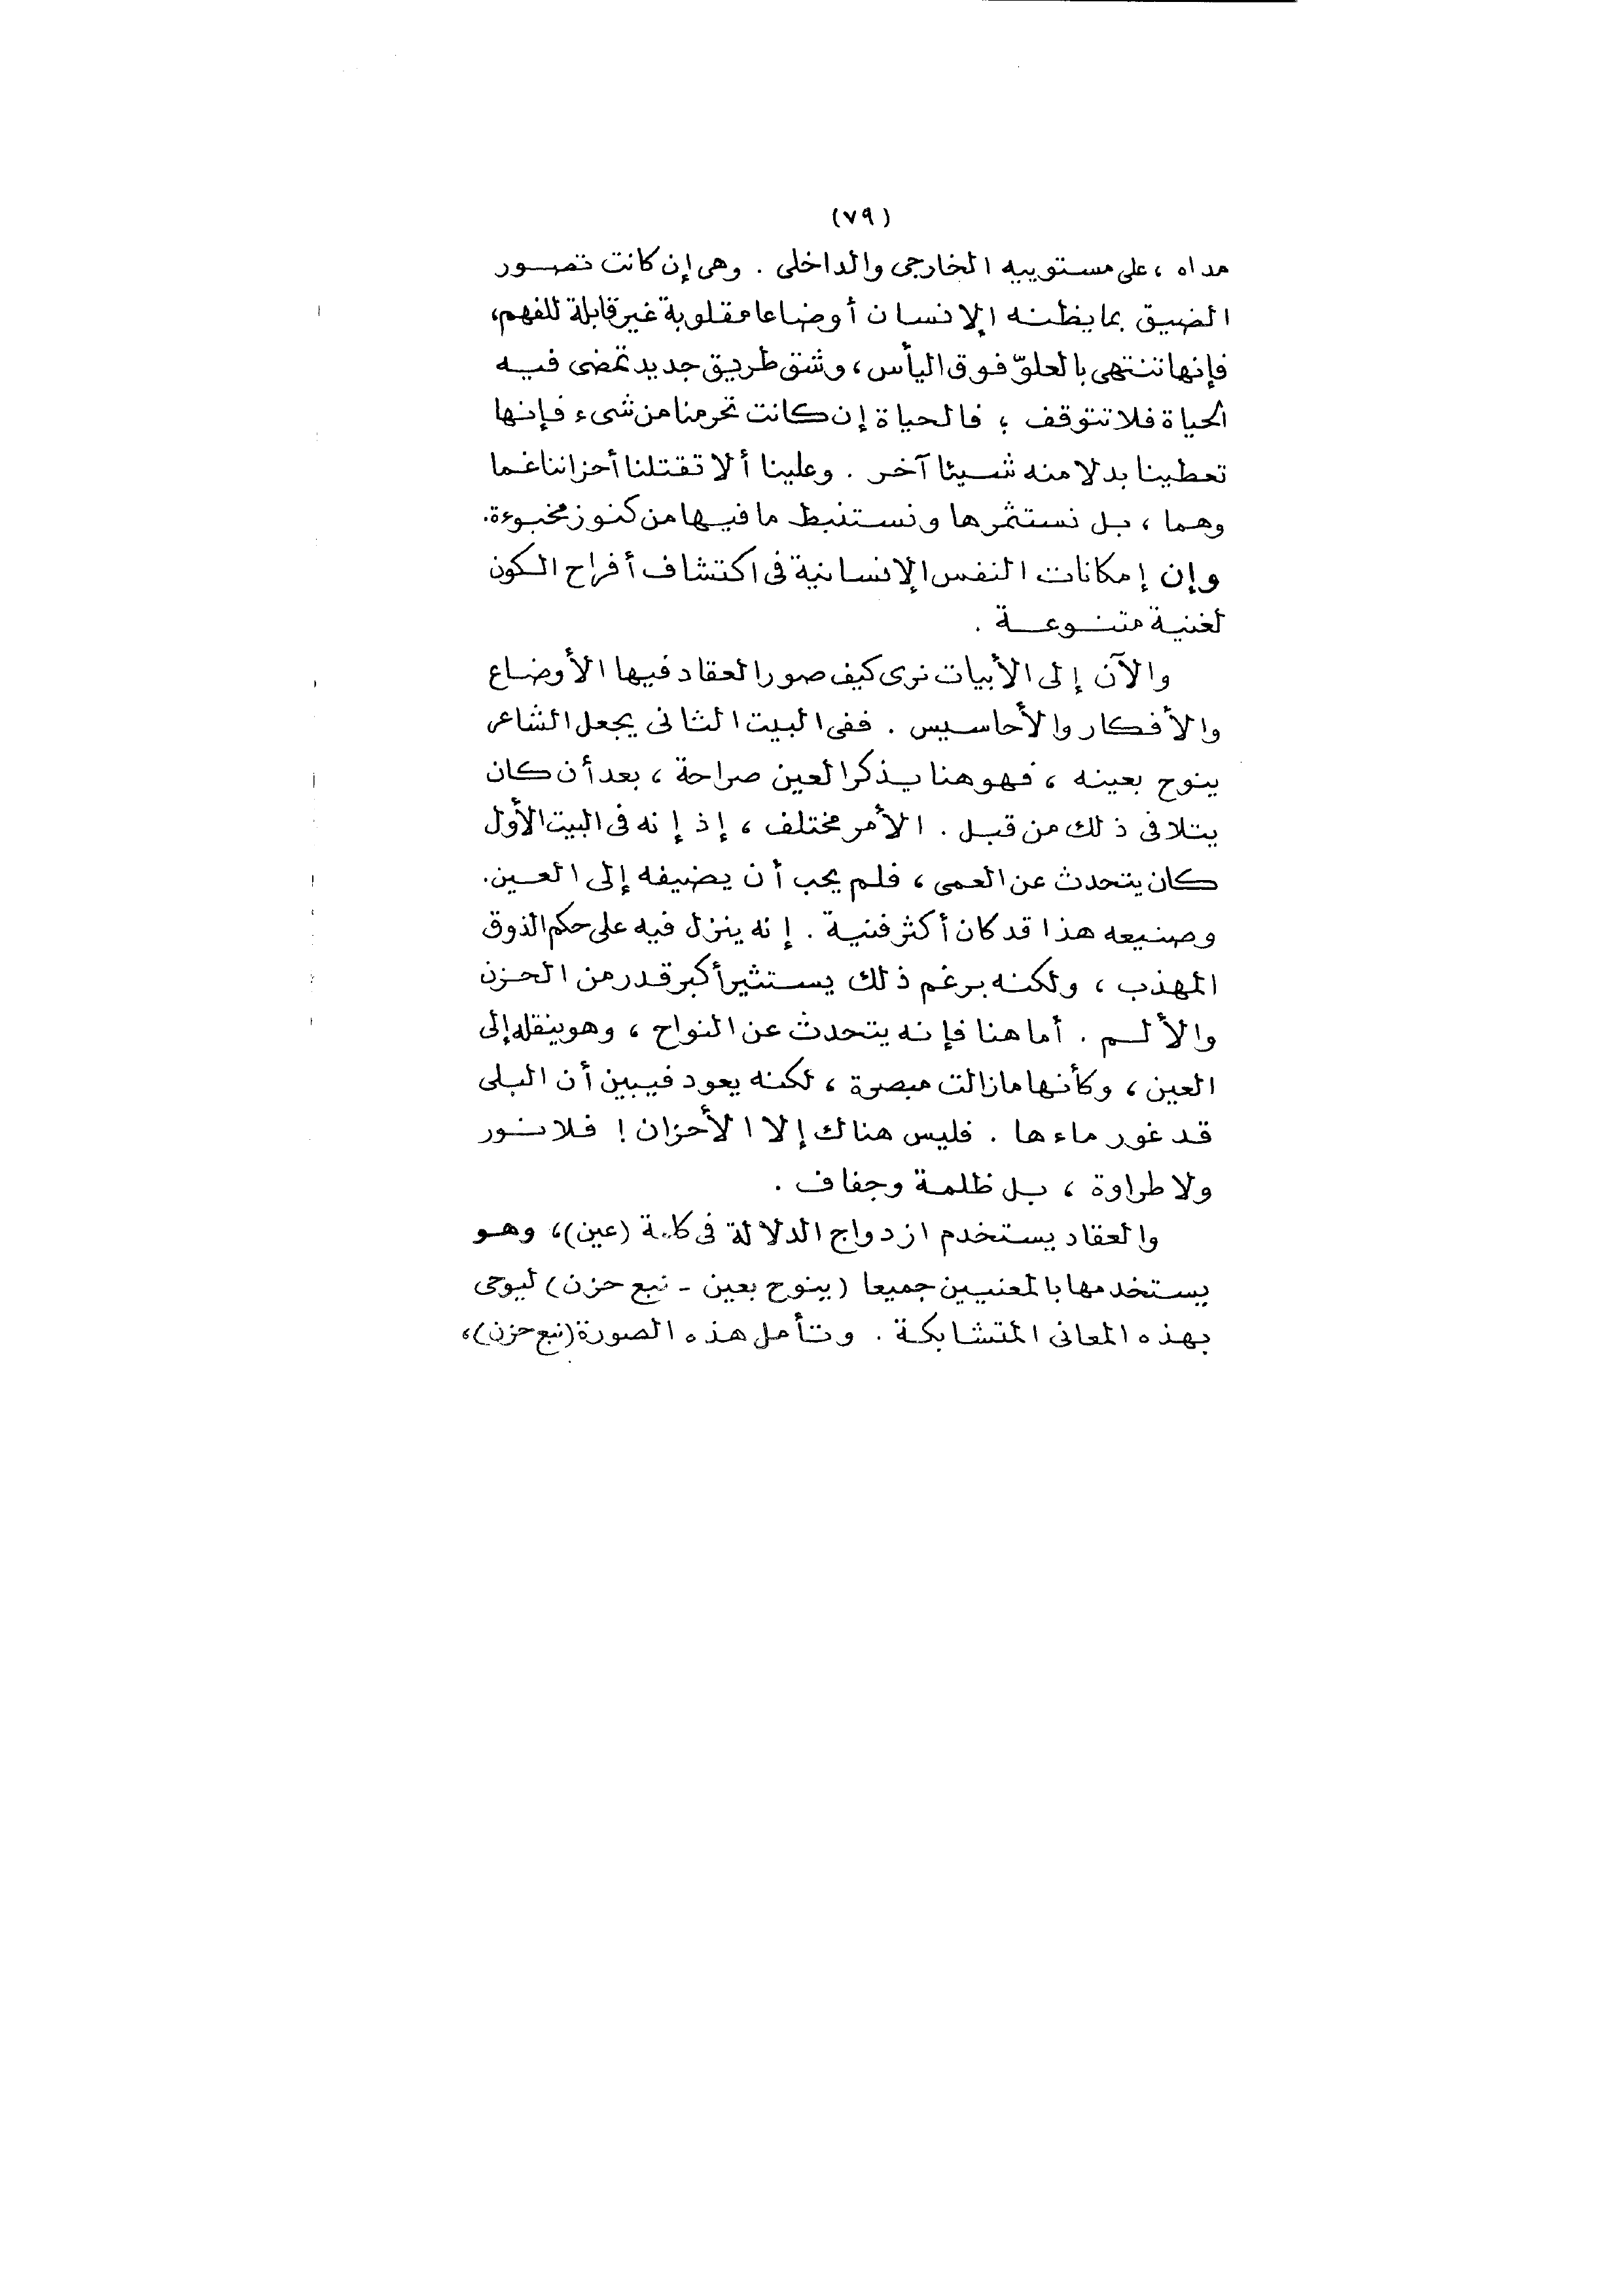 (٧٩)
مداه ، على مستوييه الخارجى والداخلى . وهى إن كانت تصور
الضيق بما يظنه الإنسان أوضاعا مقلوبة غير قابلة للفهم،
فإنها تنتهى بالعلوّ فوق اليأس، وشق طريق جديد تمضى فيه
الحياة فلا تتوقف ؛ فالحياة إن كانت تحرمنا من شىء فإنها
تعطينا بدلا منه شيئا آخر . وعلينا ألا تقتلنا أحزاننا غما
وهما ، بل نستثمرها ونستنبط ما فيها من كنوز مخبوءة.
وإن إمكانات النفس الإنسانية فى اكتشاف أفراح الكون
لغنية متنوعة .
والآن إلى الأبيات نرى كيف صور العقاد فيها الأوضاع
والأفكار والأحاسيس . ففى البيت الثانى يجعل الشاعر
ينوح بعينه ، فهو هنا يذكر العين صراحة ، بعد أن كان
يتلافى ذلك من قبل . الأمر مختلف ، إذ إنه فى البيت الأول
كان يتحدث عن العمى ، فلم يحب أن يضيفه إلى العين.
وصنيعه هذا قد كان أكثر فنية . إنه ينزل فيه على حكم الذوق
المهذب ، ولكنه برغم ذلك يستثير أكبر قدر من الحزن
والألم . أما هنا فإنه يتحدث عن النواح ، وهو ينقله إلى
العين ، وكأنها مازالت مبصرة ، لكنه يعود فيبين أن البلى
قد غور ماءها . فليس هناك إلا الأحزان ! فلا نور
ولا طراوة ، بل ظلمة وجفاف .
والعقاد يستخدم ازدواج الدلالة فى كلمة (عين)، وهو
يستخدمها بالمعنيين جميعا (ينوح بعين - نبع حزن) ليوحى
بهذه المعانى المتشابكة . وتأمل هذه الصورة (نبع حزن)،